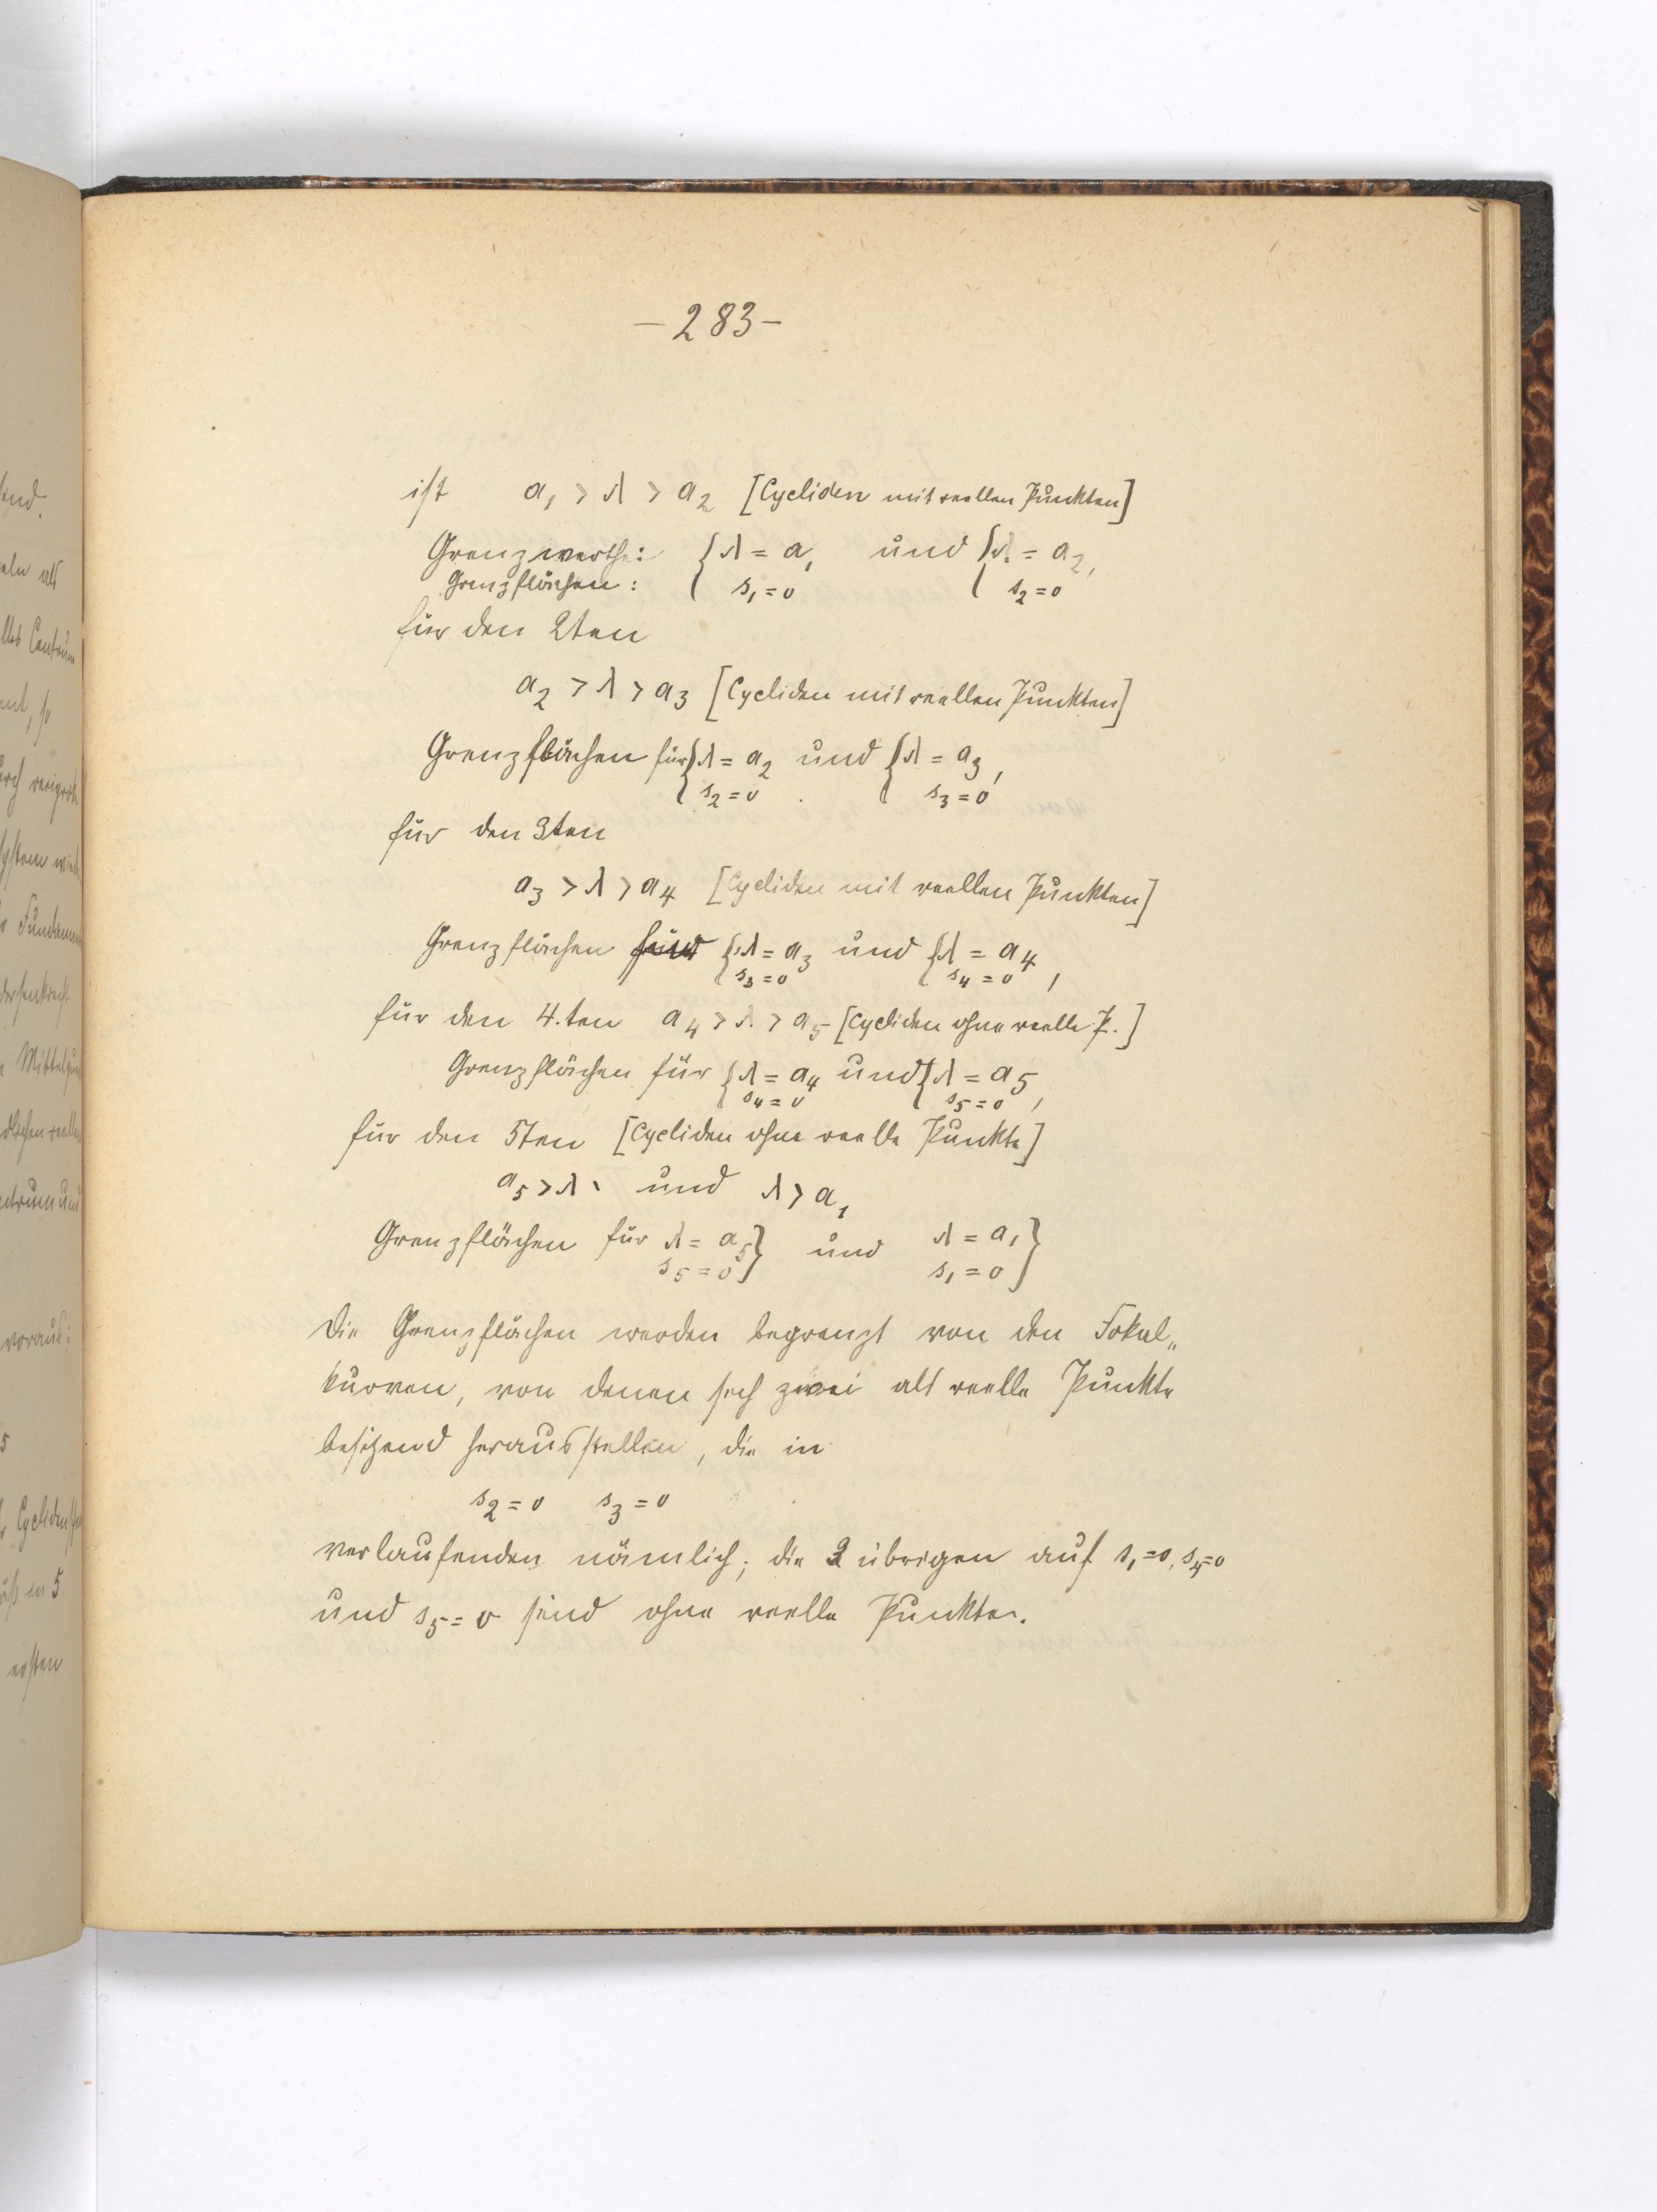 – 283 –
ist a₁ > λ > a₂ [Cycliden mit reellen Punkten]
Grenzwerthe: { λ = a₁ und { λ = a₂,
Grenzflächen: { s₁ = 0 { s₂ = 0
für den 2ten
a₂ > λ > a₃ [Cycliden mit reellen Punkten]
Grenzflächen für { λ = a₂ und { λ = a₃,
s₂ = 0 s₃ = 0
für den 3ten
a₃ > λ > a₄ [Cycliden mit reellen Punkten]
Grenzflächen für { λ = a₃ und { λ = a₄
s₃ = 0 s₄ = 0 ,
für den 4.ten a₄ > λ > a₅ [Cycliden ohne reelle P.]
Grenzflächen für { λ = a₄ und { λ = a₅
s₄ = 0 s₅ = 0 ,
für den 5ten [Cycliden ohne reelle Punkte]
a₅ > λ und λ > a₁
Grenzflächen für λ = a₅ } und λ = a₁ }
s₅ = 0 s₁ = 0
Die Grenzflächen werden begrenzt von den Fokal„
kurven, von denen sich zwei als reelle Punkte
besitzend herausstellen, die in
s₂ = 0 s₃ = 0
verlaufenden nämlich; die 3 übrigen auf s₁ = 0, s₄ = 0
und s₅ = 0 sind ohne reelle Punkte.